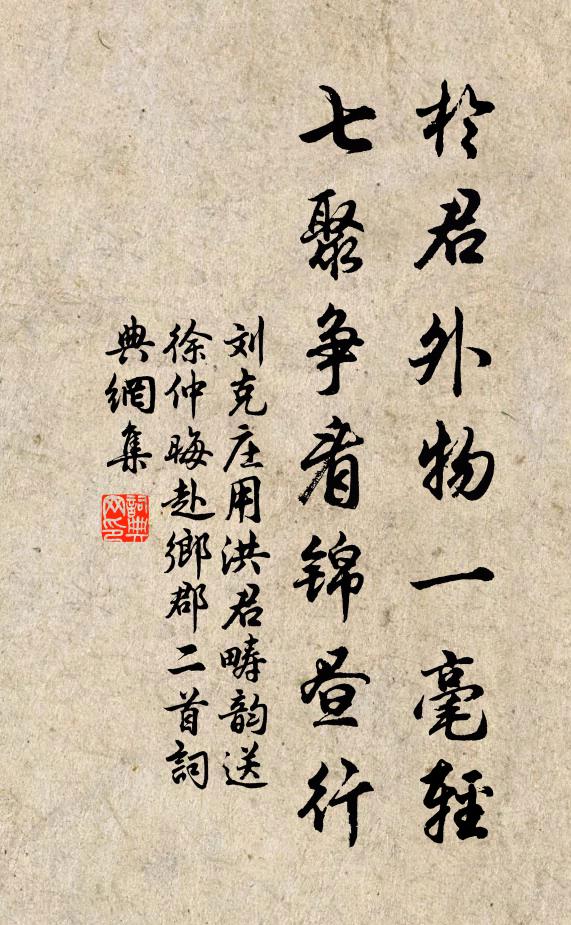 於君外物一毫輕
七聚争看锦昼行
刘克庄用洪君畴韵送
徐仲晦赴鄉郡二首詞
典網集
詞典
网印